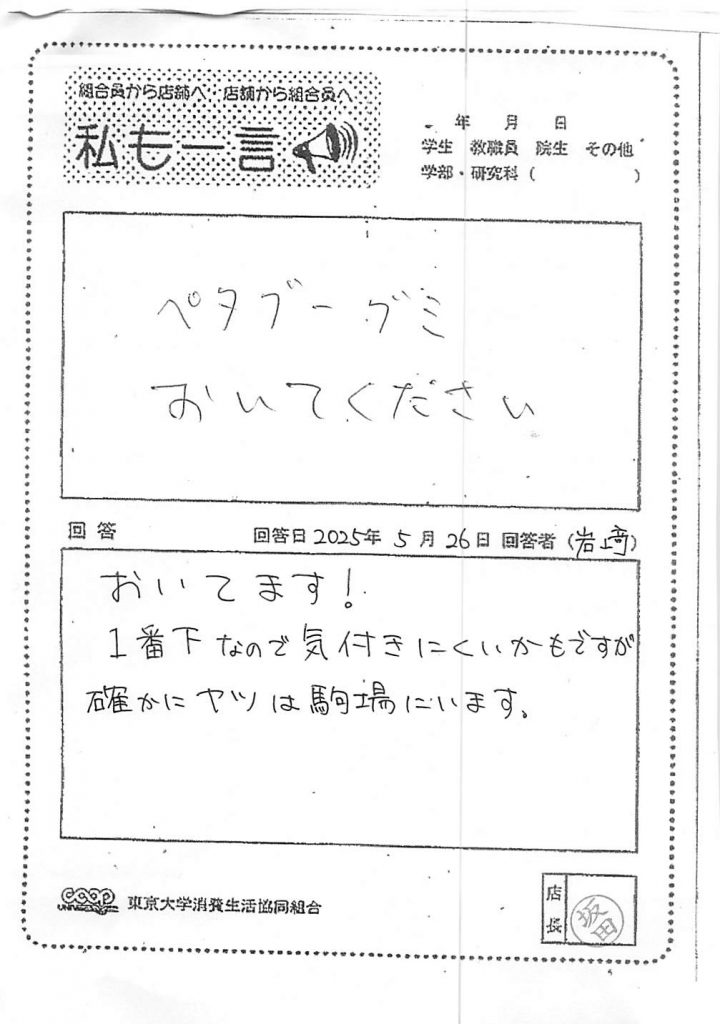 組合員から店舗へ・店舗から組合員へ
私も一言
年 月 日
学生 教職員 院生 その他
学部・研究科 ( )
ペタブーグミ
おいてください
回答
回答日 2025年 5月 26日 回答者 (岩﨑)
おいてます!
1番下なので気付きにくいかもですが
確かにヤツは駒場にいます。
coop 東京大学消費生活協同組合
店長
坂田